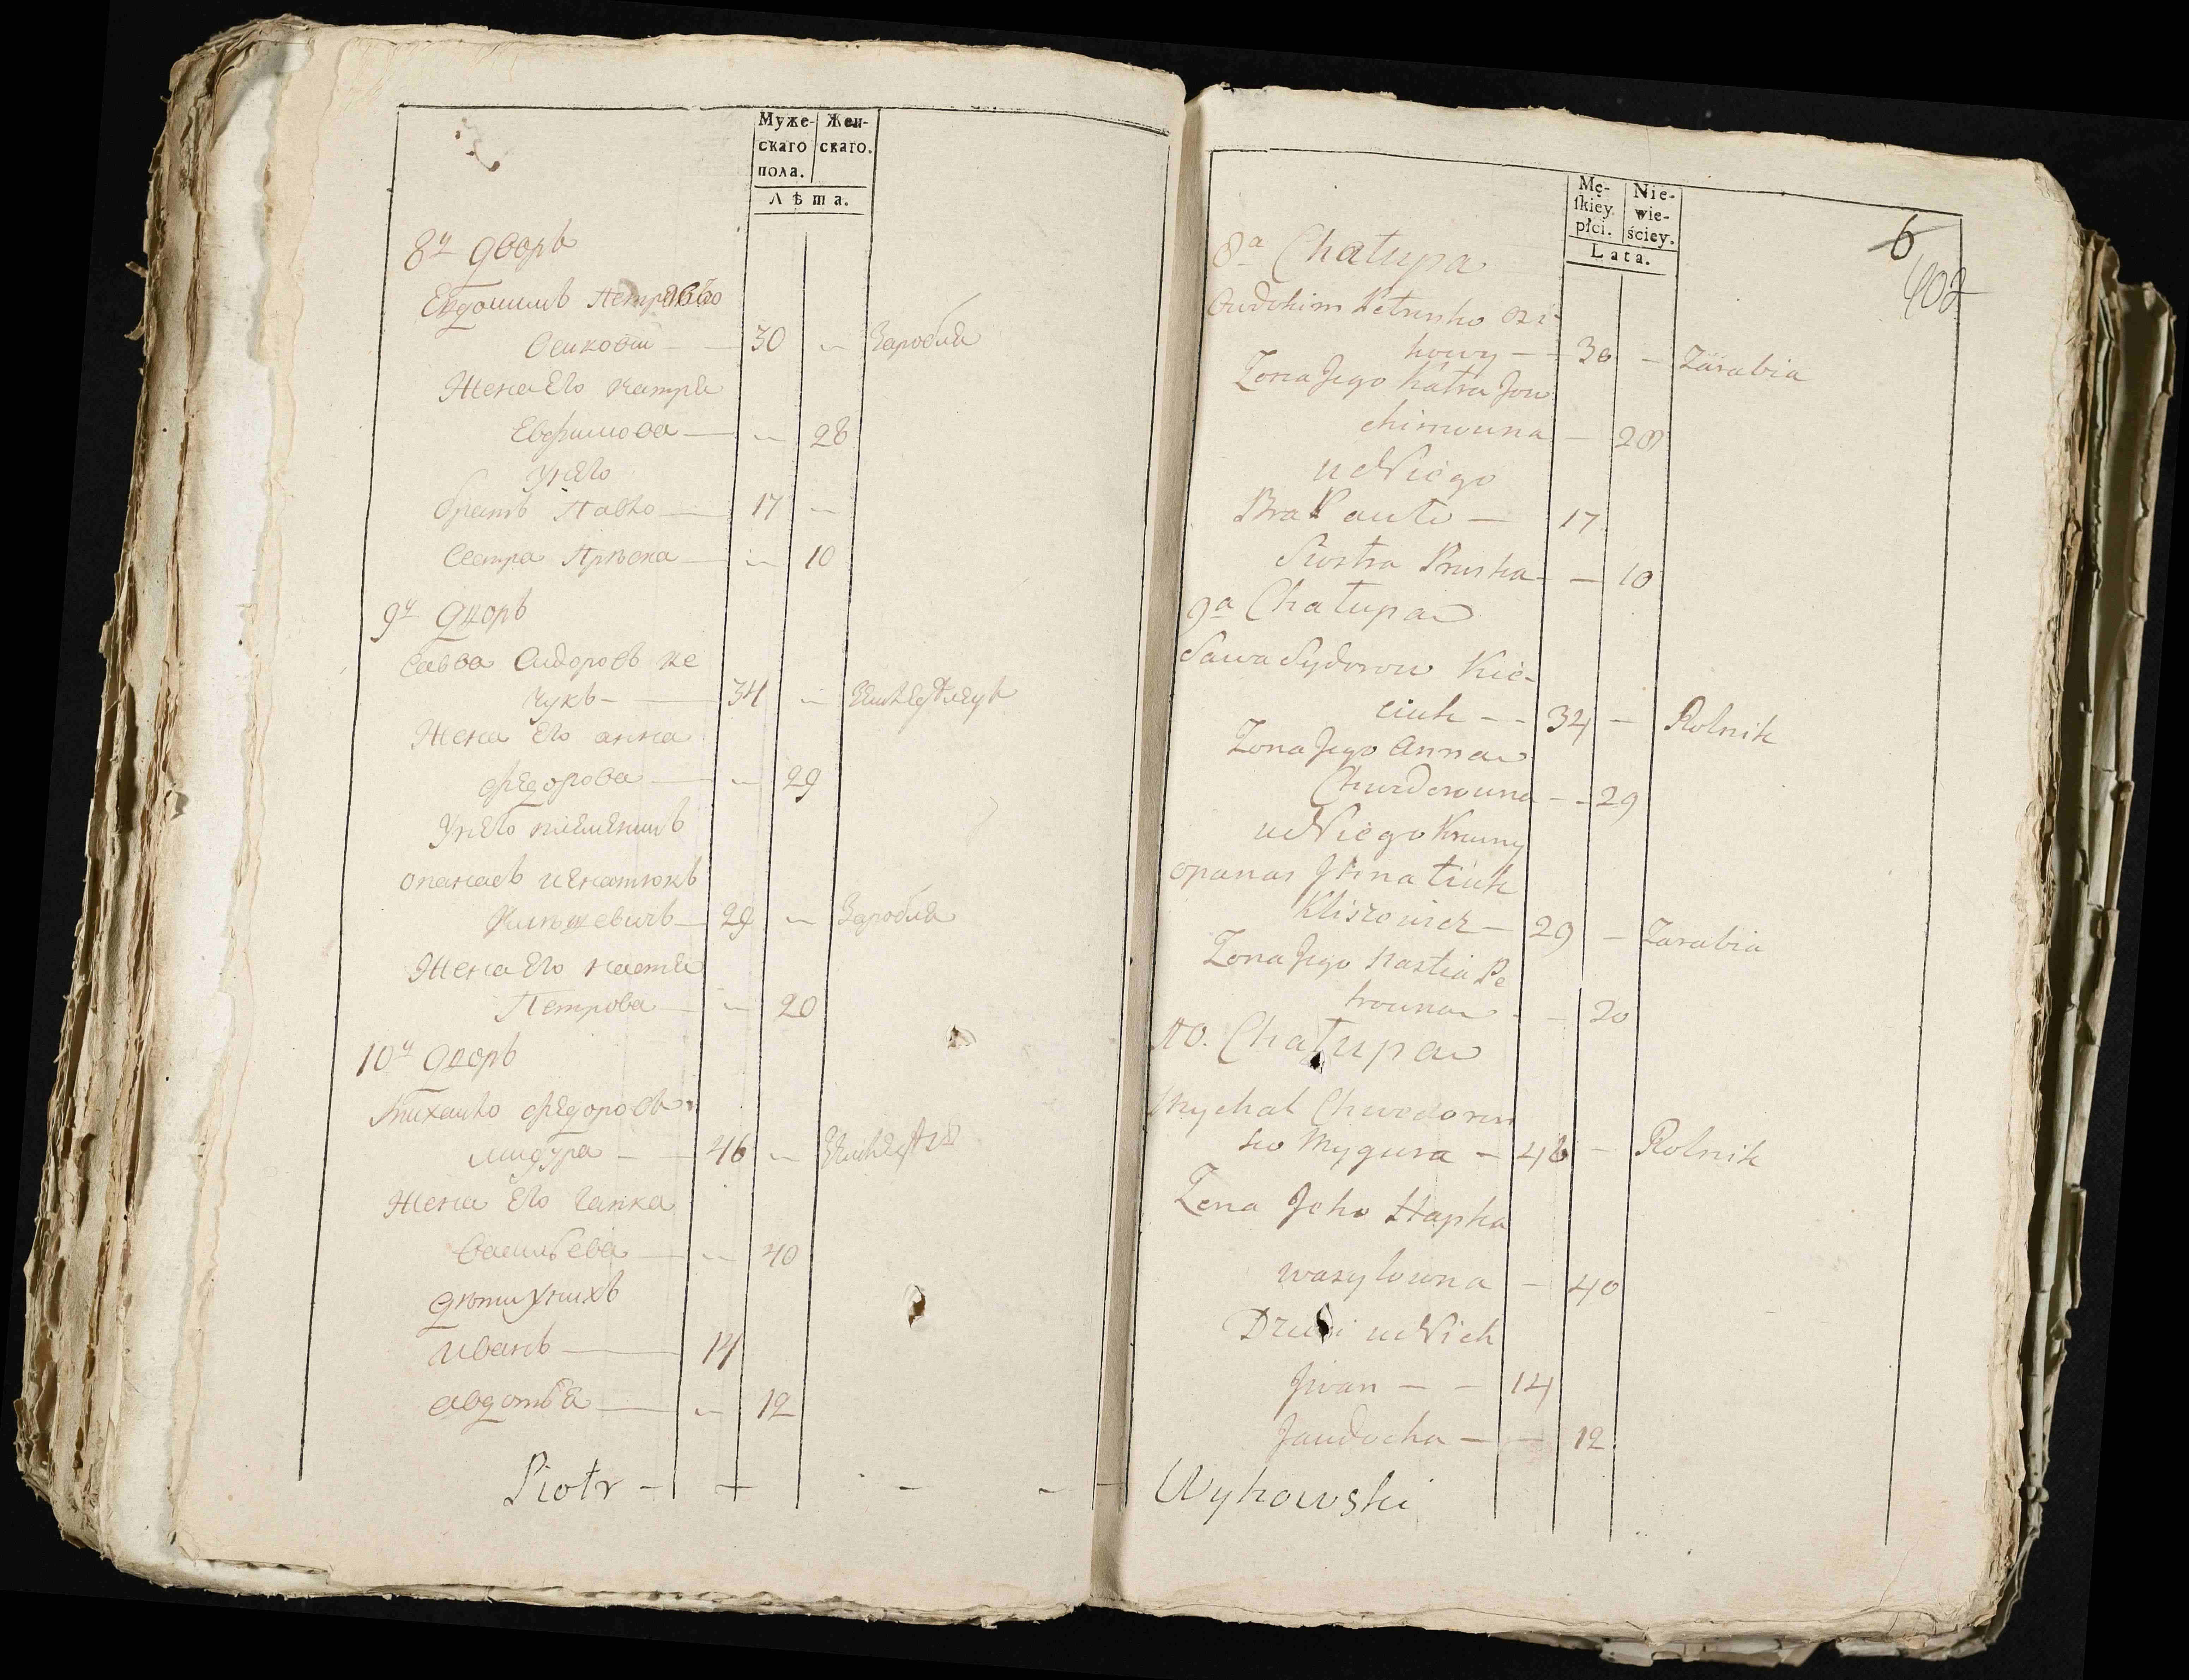 Муже-
скаго
пола.
Жен-
скаго.
Лѣта.
8й дворъ
Евдокимъ
30 — Заробля
Жена Его катря
Евфимова — 28
Унего
братъ Павло — 17 —
Сестра Приска — 10
9й дворъ
Савва Сидоровъ ке
чукъ — 34 —
Жена Его анна
федорова — 29
Унего
опанасъ игнатюкъ
29 — Заробля
Жена Его настя
Петрова — 20
10й дворъ
Михайло федоровъ
мигура — 46 —
Жена Его гапка
Васильева — 40
дѣти унихъ
иванъ — 14
авдотья — 12
Piotr
Mę-
ſkiey
płci.
Nie-
wie-
ściey.
Lata.
6
402
8a Chałupa
Oudokim Petrusko
30 — Zarabia
Zona Jego katra Jou
chimouna — 28
u Niego
Brat Pauło — 17
Siostra Pruska — 10
9a Chałupa
Sawa Sydorow Kie-
ciuk — 34 — Rolnik
Zona Jego Anna
Chwedorouna — 29
u Niego Krewny
opanas Ihnatiuk
Kliszewicz — 29 — Zarabia
Zona Jego Nastia Pe
trouna — 20
10. Chałupa
Mychal Chwedorow
Mygura — 46 — Rolnik
Zena Jeho Hapka
wasylowna — 40
Dzieci u Nich
Jwan — 14
Jaudocha — 12
Wykowski